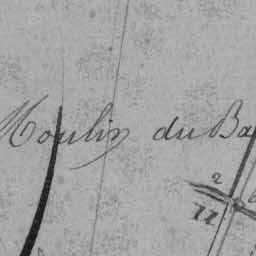 Moulin du Ba
2